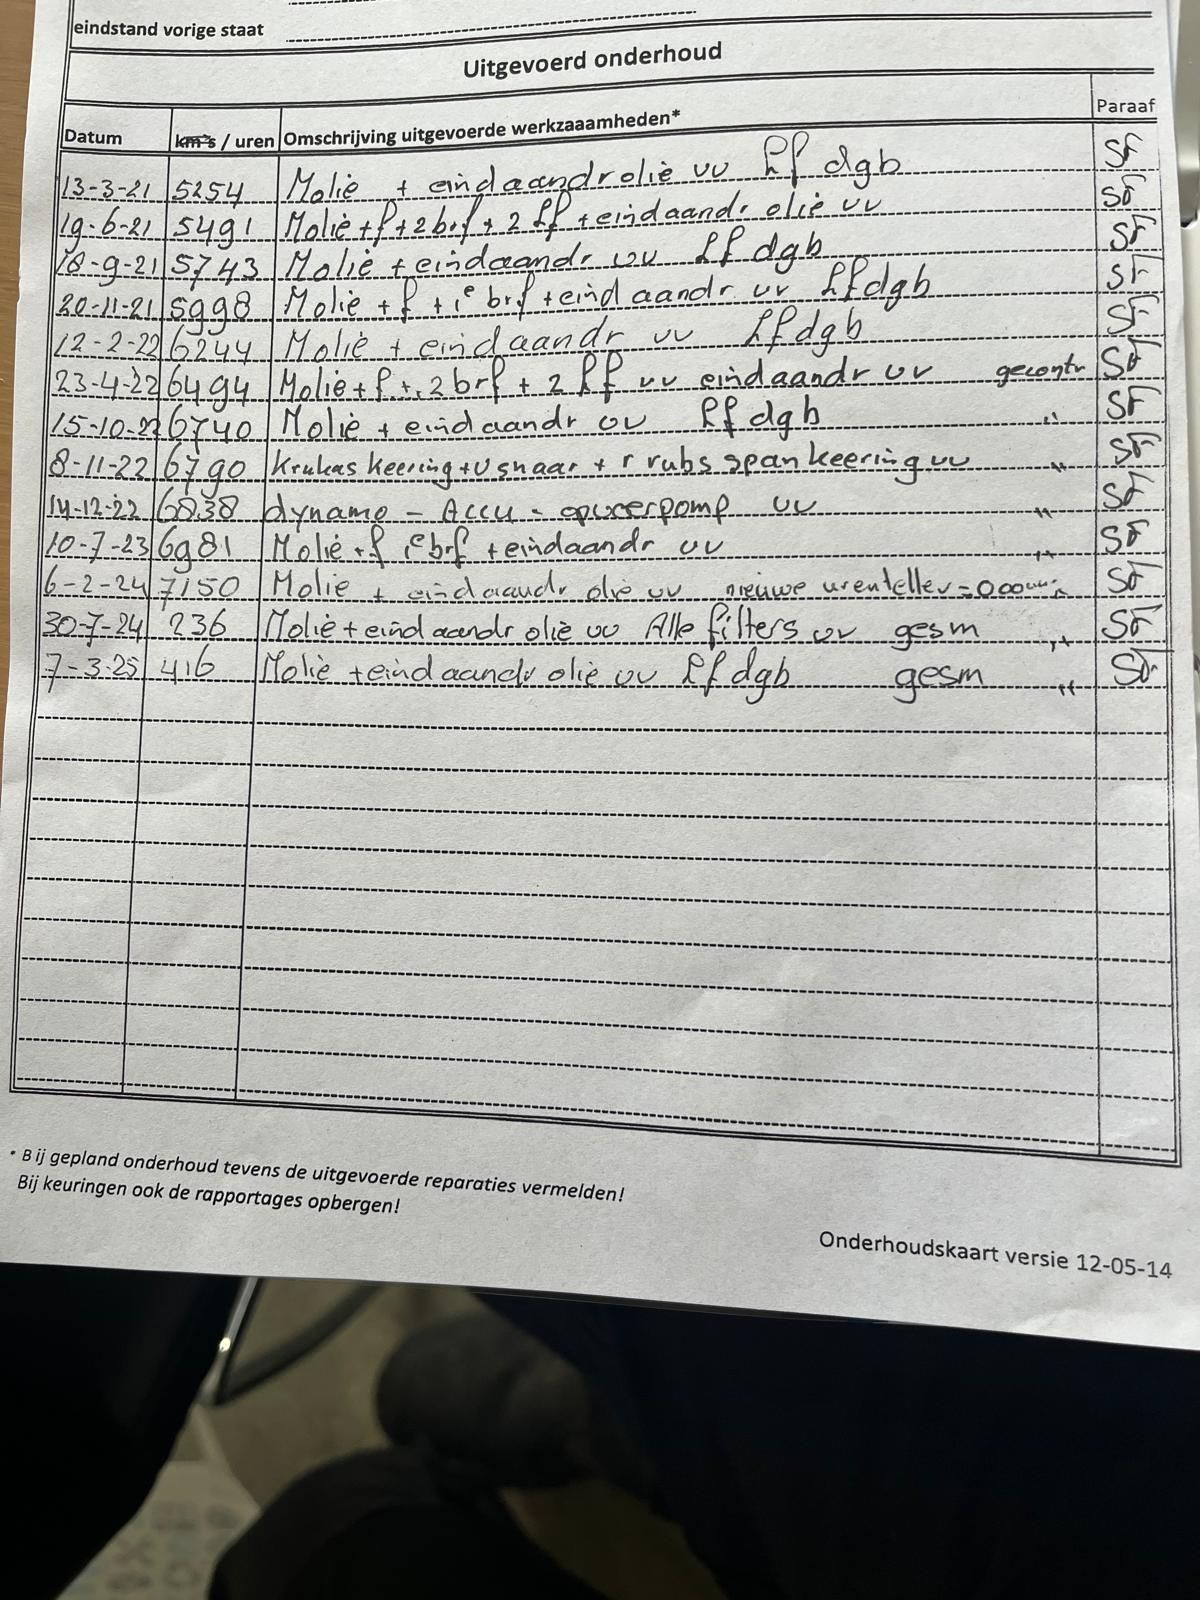 eindstand vorige staat
Uitgevoerd onderhoud
Datum km's / uren Omschrijving uitgevoerde werkzaaamheden* Paraaf
13-3-21 5254 Molie + eindaandrolie vv Lf dgb SF
19-6-21 5491 Molie+f+2brf+2 Lf +eindaandr olie vv SF
18-9-21 5743 Molie +eindaandr vv Lf dgb SF
20-11-21 5998 Molie +f +1e brf +eind aandr vv Lf dgb SF
12-2-22 6244 Molie + eindaandr vv Lf dgb SF
23-4-22 6494 Molie+f+2brf+2 Lf vv eindaandr vv gecontr SF
15-10-22 6740 Molie + eindaandr vv Lf dgb " SF
8-11-22 6790 Krukas keering+v snaar + r rubs spankeering vv " SF
14-12-22 6838 dynamo - Accu - opvoerpomp vv " SF
10-7-23 6981 Molie +f 1e brf +eindaandr vv " SF
6-2-24 7150 Molie + eindaandr olie vv nieuwe urenteller = SF
30-7-24 236 Molie+eindaandr olie vv Alle filters vv gesm " SF
7-3-25 416 Molie +eindaandr olie vv Lf dgb gesm " SF
* Bij gepland onderhoud tevens de uitgevoerde reparaties vermelden!
Bij keuringen ook de rapportages opbergen!
Onderhoudskaart versie 12-05-14